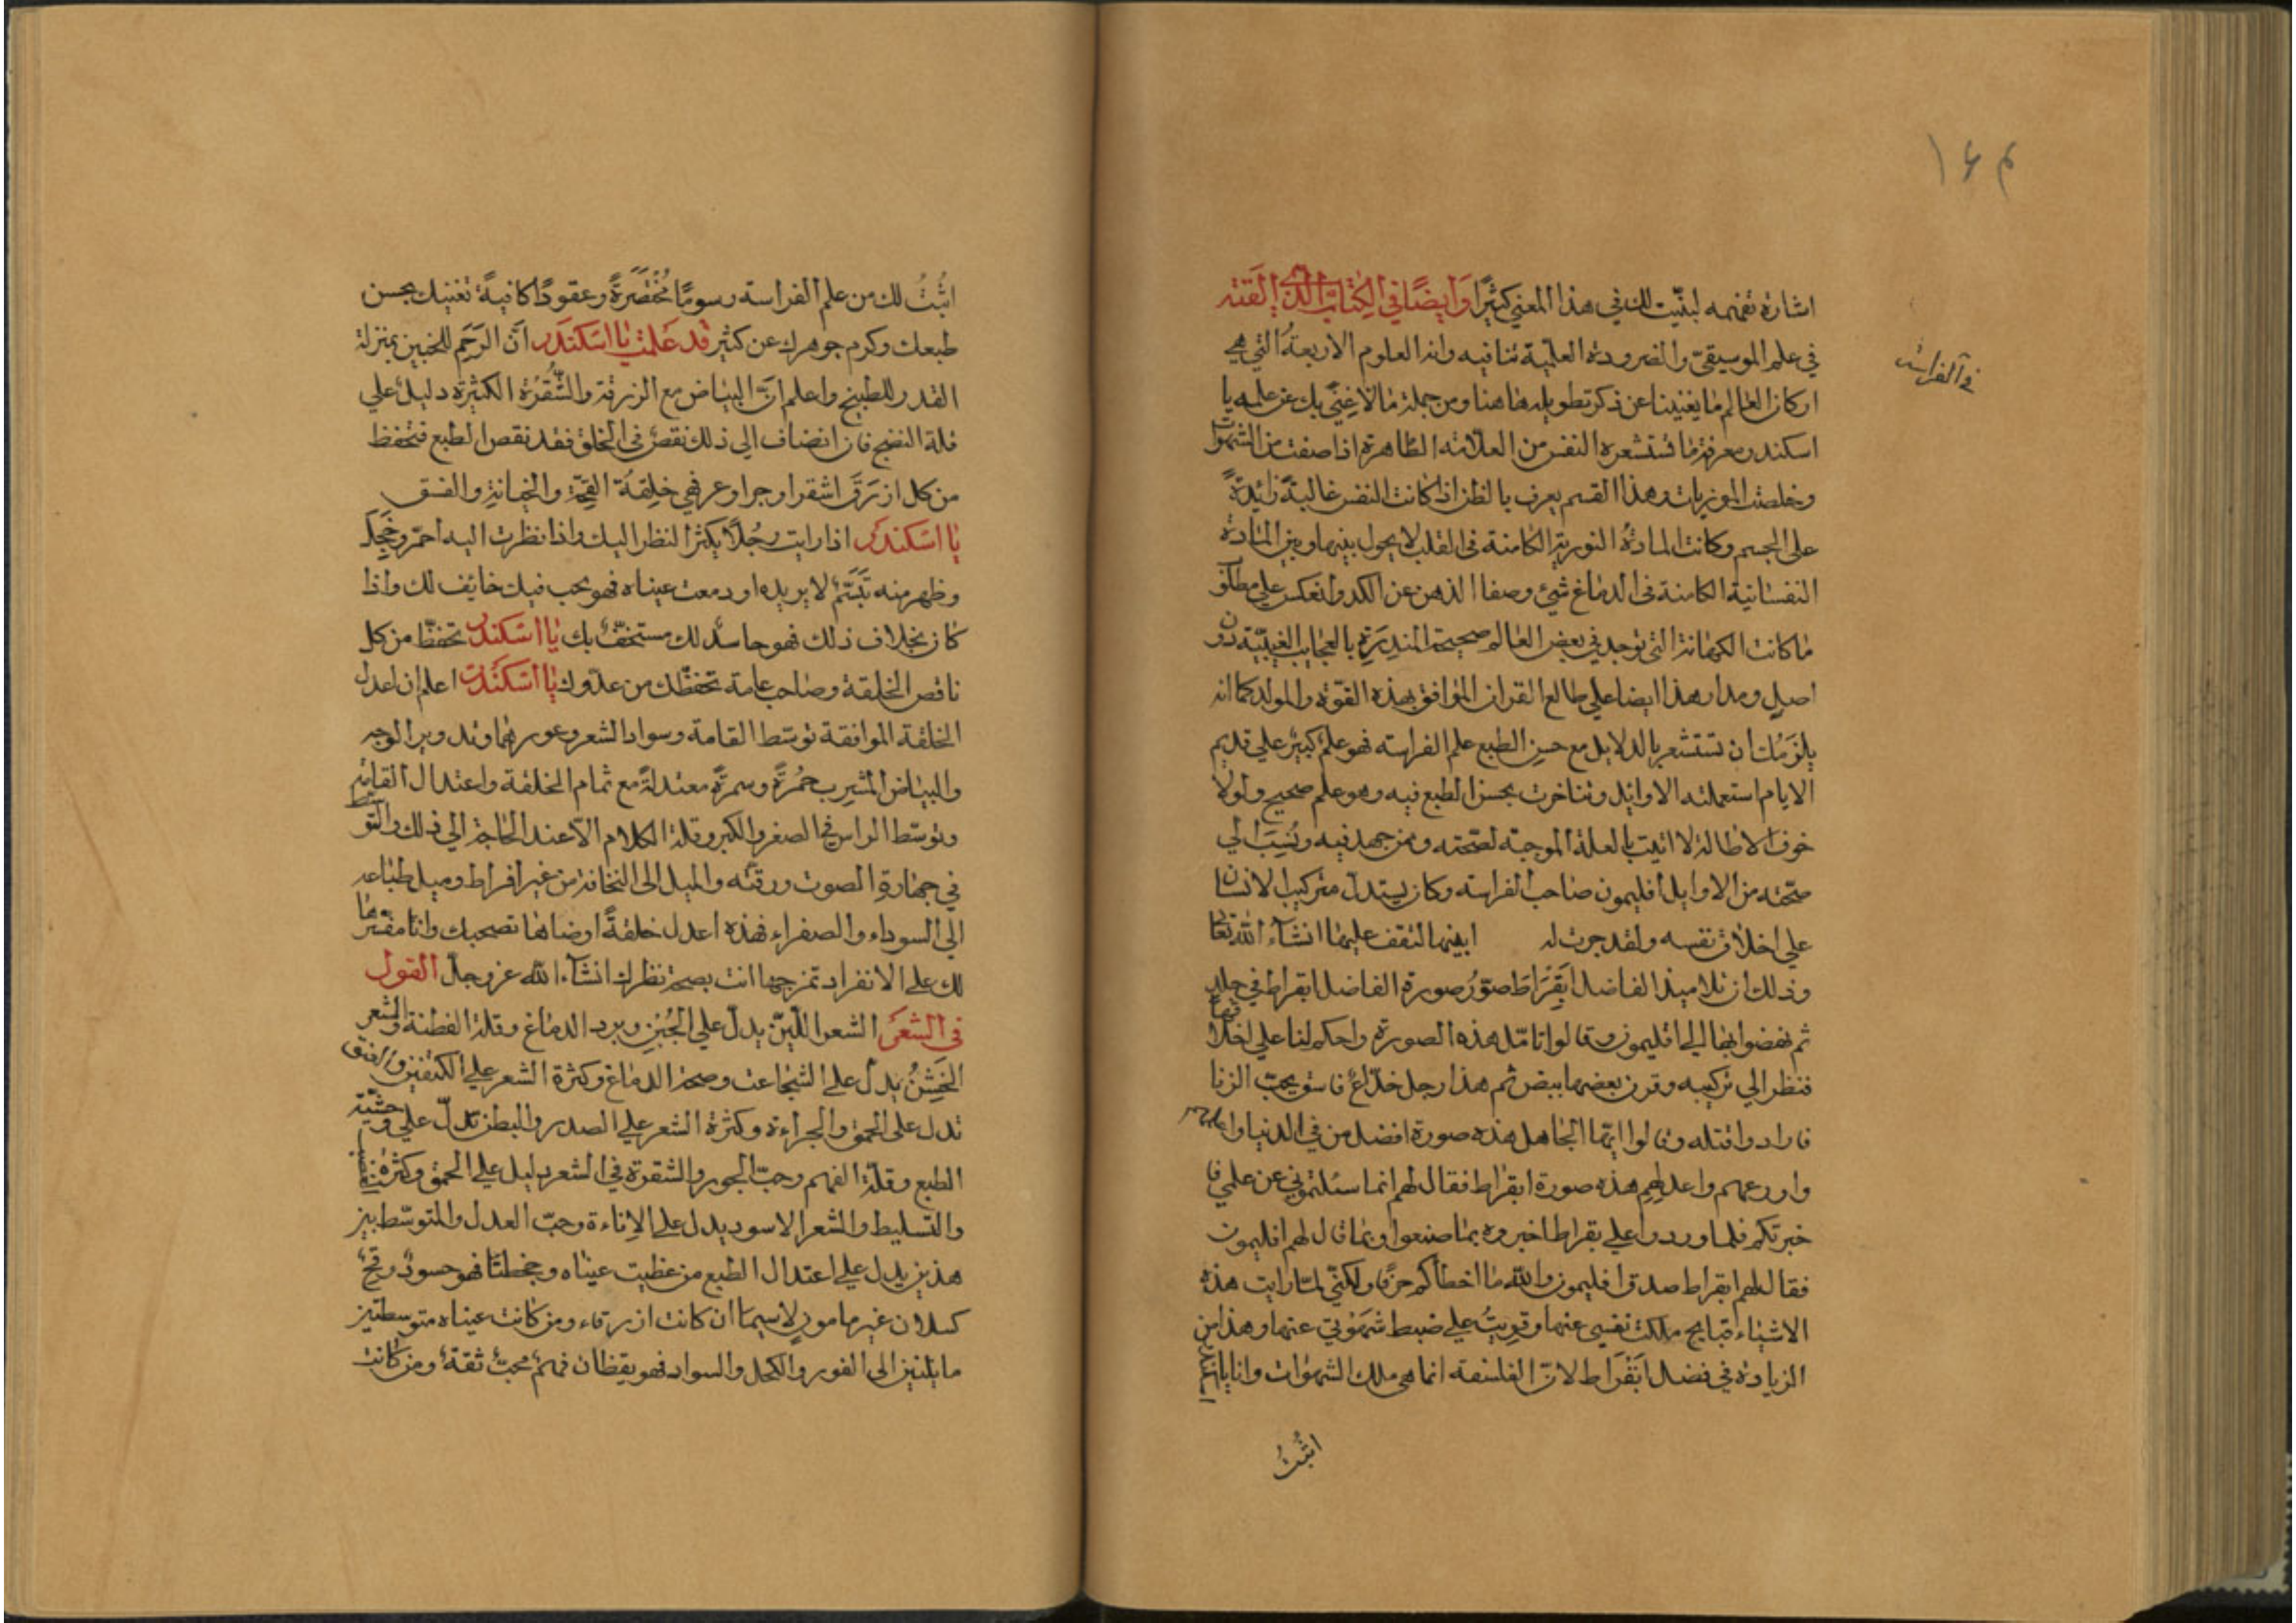 ١٤٣
في الفراسة
اشارة تفهمه لبنّيت لك في هذا المعني كثيرًا وَايضًا في الكِتٰابِ الذّي الّفته
في علم الموسيقيّ والضرورة العلميّة تنافيه وانه العلوم الاربعةُ التي هي
اركان العٰالم مٰا يغنينا عن ذكر تطويله هٰاهنا ومن جملة مٰا لا غِنًي بك عن علمه يا
اسكندر معرفة مٰا تستشعره النفس من العلامٰة الظٰاهرة اذا صفت من الشهوٰات
وخلصت الموزيات وهذا القسم يعرف بالظن اذا كانت النفس غالبةً زائدةً
علي الجسم وكانت المادةُ النورية الكامنة في القلب لا يحول بينها وبين المٰادة
النفسٰانية الكامنة في الدمٰاغ شيئ وصفا الذهن عن الكدر وانعكس علي مطلق
مٰا كانت الكهٰانة التي توجد في بعض العٰالم صحيحة المنذِرَةِ بالعجٰايب الغيبيّة دون
اصلٍ ومدار هذا ايضا علي طالع القران الموٰافق بهذه القوّة والمولد كما انه
يلزَمُك ان تستشعر بالدلايل مع حسنِ الطبع علم الفراسته فهو علمٌ كبيرٌ علي قديم
الايام استعملته الاوائل وتناخرت بحسن الطبع فيه وهو علم صحيح ولولا
خوف الاطالة لاتيت بالعلة الموجبة لصّحته ومن جهد فيه ونُسِبَ الي
صحّته من الاوايل افليمون صٰاحب الفراسته وكان يستدلّ من تركيب الانسٰان
علي اخلاق نفسه ولقد جرت له ابينها لتقف عليهٰا انشآء اللّه تعٰا
وذلك ان تلاميذ الفاضل اَبقِرَاطَ صوّرُ صورة الفاضل ابقراط في جلد
ثم نهضوا بهٰا الي افليمون وقالوا تامّل هذه الصورة واحكم لنا علي اخلاقهٰا
فنظر الي تركيبه وقرن بعضها ببعض ثم هذا رجل خدّاعٌ فاسق يحبّ الزنا
فارادوا قتله وقالوا ايّها الجٰاهل هذه صورة افضل من في الدنيا
واورعهم واعدلهم هذه صورة ابقراط فقال لهم انما سئلتموني عن علمي فا
خبرتكم فلما وردوا علي بقراط اخبروه بمٰا صنعوا وبمٰا قال لهم افليمون
فقال لهم ابقراط صدق افليمون واللّه مٰا اخطاكم حرفًا ولكنّي لمّا رايت هذه
الاشيٰاء قبايح ملكت نفسي عنها وقويتُ علي ضبط شهوتي عنها وهذا من
الزيادة في فضل اَبقْرَاط لانّ الفلسفة انما هي ملك الشهوٰات وانا يا اسكندر
اثبُتُ
اثبُتُ لك من علم الفراسته رسومًا مُختصَرةً وعقودًا كافيةً تغنيك بحسن
طبعك وكرم جوهرك عن كثير قد عَلمت يٰا اسَكندَر انّ الرَحِم للجنين بمنزلة
القدر للطبيخ واعلم انّ البيٰاض مع الزرقة والشُقرةُ الكثيرة دليلٌ علي
قلة النضج فان انضاف الي ذلك نقصٌ في الخلق فقد نقص الطبع فتحفظ
من كل ازرَق اشقر اوجر اوعر ففي خلِقته القِحَة والخيانة والفسق
يٰا اسَكندَر اذا رايت رجُلاً يكثر النظر اليك واذا نظرت اليه احمّر وخَجِل
وظهر منه تَبَسّمٌ لا يريده او دمعت عينٰاه فهو يحب فيك خايف لك واذا
كٰان بخلاف ذلك فهو حاسدٌ لك مستخفٌّ بك يٰا اسَكندَر تحفّظ من كل
ناقص الخلقة وصٰاحب عٰامة تحفظّك من عدّوك يٰا اسكنَدر اعلم ان اعدل
الخلقة الموافقة توسّط القامة وسواد الشعر وغورهما وتدوير الوجه
والبيٰاض المشرب حُمرةً وسمرةً معتدلةً مع تمام الخلقة واعتدال القامة
وتوسّط الراس في الصغر والكبر وقلة الكلام الّا عند الحٰاجة الي ذلك والتوسط
في جهٰارة الصوت ورقّته والميل الي النخافة من غير افراط وميل طبٰاعه
الي السوداء والصفراء فهذه اعدل خلقةً ارضٰاهٰا تصحبك وانا مفسّرهٰا
لك علي الانفراد تمزجها انت بصحة نظرك انشآء اللّه عز وجلّ القول
في الشعَر الشعر اللّين يدلّ علي الجُبنِ وبرد الدمٰاغ وقلة الفطنة والشعر
الخَشِنُ يدلّ علي الشجٰاعت وصحة الدمٰاغ وكثرة الشعر علي الكتفين والعنق
تدل علي الحمق والجراءة وكثرة الشعر علي الصدر والبطن تدلّ علي وحشيّة
الطبع وقلّة الفهم وحبّ الجور والشقرة في الشعر دليل علي الحمق وكثرة
والتسليط والشعر الاسود يدل علي الاناءة وحبّ العدل والمتوسّط بين
هذين يدل علي اعتدال الطبع من عظمت عينٰاه وجحظتا فهو حسودٌ وقحٌ
كسلان غير مامون لاسيما ان كانت ازرقاء ومن كانت عيناه متوسطتين
مايلتين الي الغور والكحل والسواد فهو يقظان فهمٌ محبٌّ ثقةٌ ومن كٰانت